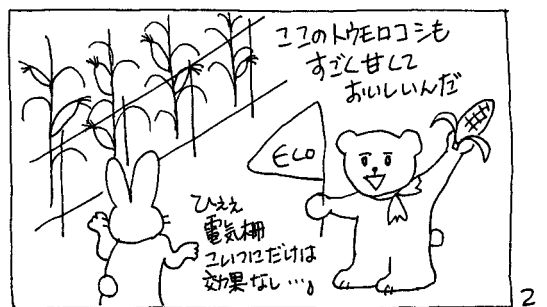 ここのトウモロコシも
すごく甘くて
おいしいんだ
ECO
ひええ
電気柵
こいつにだけは
効果なし…。
2